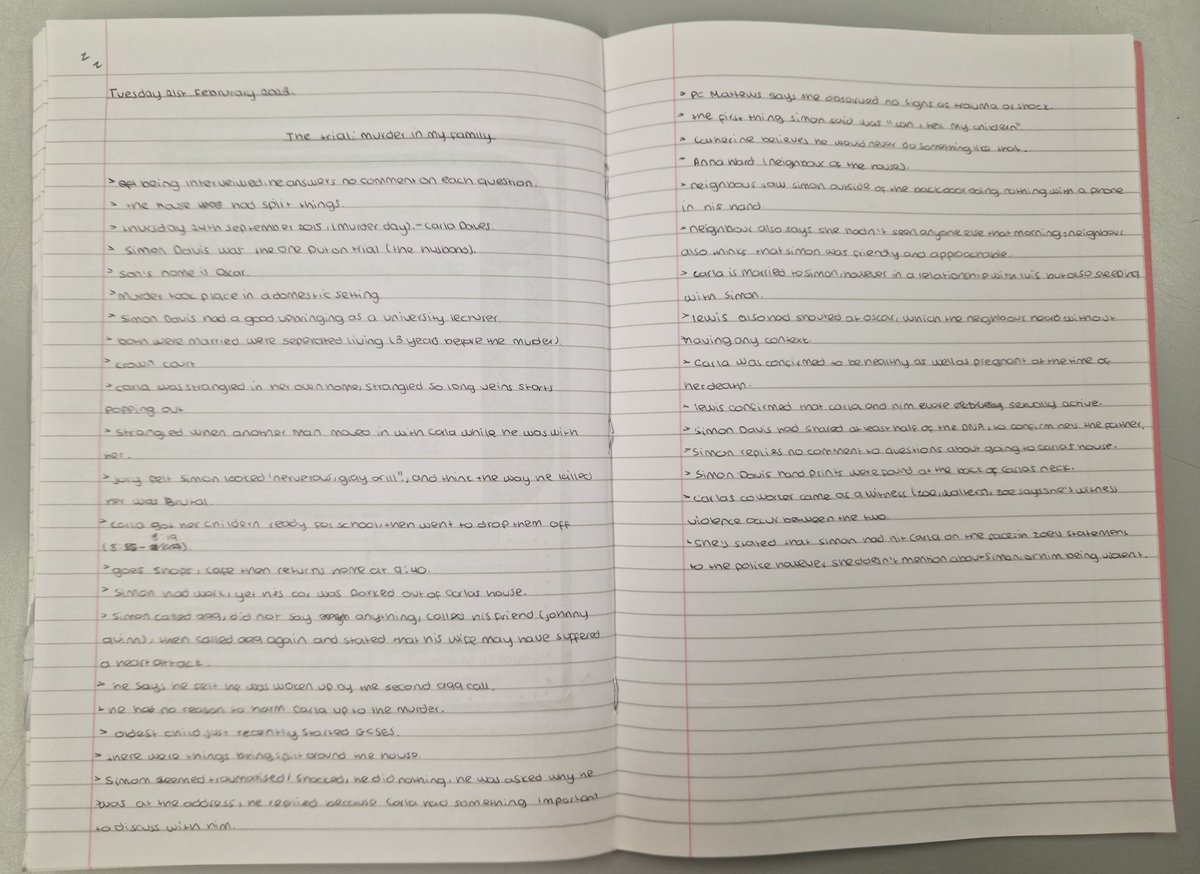 Tuesday 21st February 2023.
The trial: murder in my family
> being interveiwed, he answers no comment on each question.
> the house had split things.
> thursday 24th september 2015, (murder day). - Carla Daves.
> Simon Davis was the one put on trial (the husband).
> son's name is Oscar.
> Murder took place in a domestic setting
> Simon Davis had a good upbringing as a university lecturer.
> both were married were seperated living (3 years before the murder).
> crown court
> carla was strangled in her own home, strangled so long veins starts
popping out
> strangled when another man moved in with Carla while he was with
her.
> jury felt simon looked 'nerverous, gray or ill", and think the way he killed
her was Brutal.
> carla got her childern ready for school then went to drop them off
8:19
(8:55 -
> goes shops, cafe then returns home at 9:40.
> Simon had work, yet his car was Parked out of carlas house.
> simon called 999, did not say anything, called his friend (johnny
quinn), then called 999 again and stated that his wife may have suffered
a heart attack.
> he says he felt he was woken up by the second 999 call.
> he had no reason to harm Carla up to the murder.
> oldest child just recently started GCSES.
> there were things being spilt around the house.
> Simon seemed traumatised / shocked, he did nothing, he was asked why he
was at the address, he replied because Carla had something important
to discuss with him.
> PC Mattews says she observed no signs of trauma or shock.
> the first thing simon said was "can i tell my childern"
> Catherine believes he would never do something like that.
- Anna ward (neighbour of the house).
> neighbour saw simon outside of the backdoor doing nothing with a phone
in his hand.
> neighbour also says she hadn't seen anyone else that morning, neighbour
also thinks that simon was friendly and approachable.
> carla is married to simon, however in a relationship with luis but also sleeping
with simon.
> lewis also had shouted at oscar, which the neighbour heard without
having any context.
> Carla was confirmed to be healthy as well as pregnant at the time of
her death.
> lewis confirmed that carla and him sexually active.
> Simon Davis had shared at least half of the DNA, to confirm hes the father.
> Simon replies no comment to questions about going to carlas house.
> Simon Davis hand prints were found at the back of carlas neck.
> Carlas coworker came as a witness (zoe, walters), zoe says she's witness
violence occur between the two.
> She's stated that simon had hit Carla on the face, in zoe's statement
to the police however, she doesn't mention about simon or him being violent.